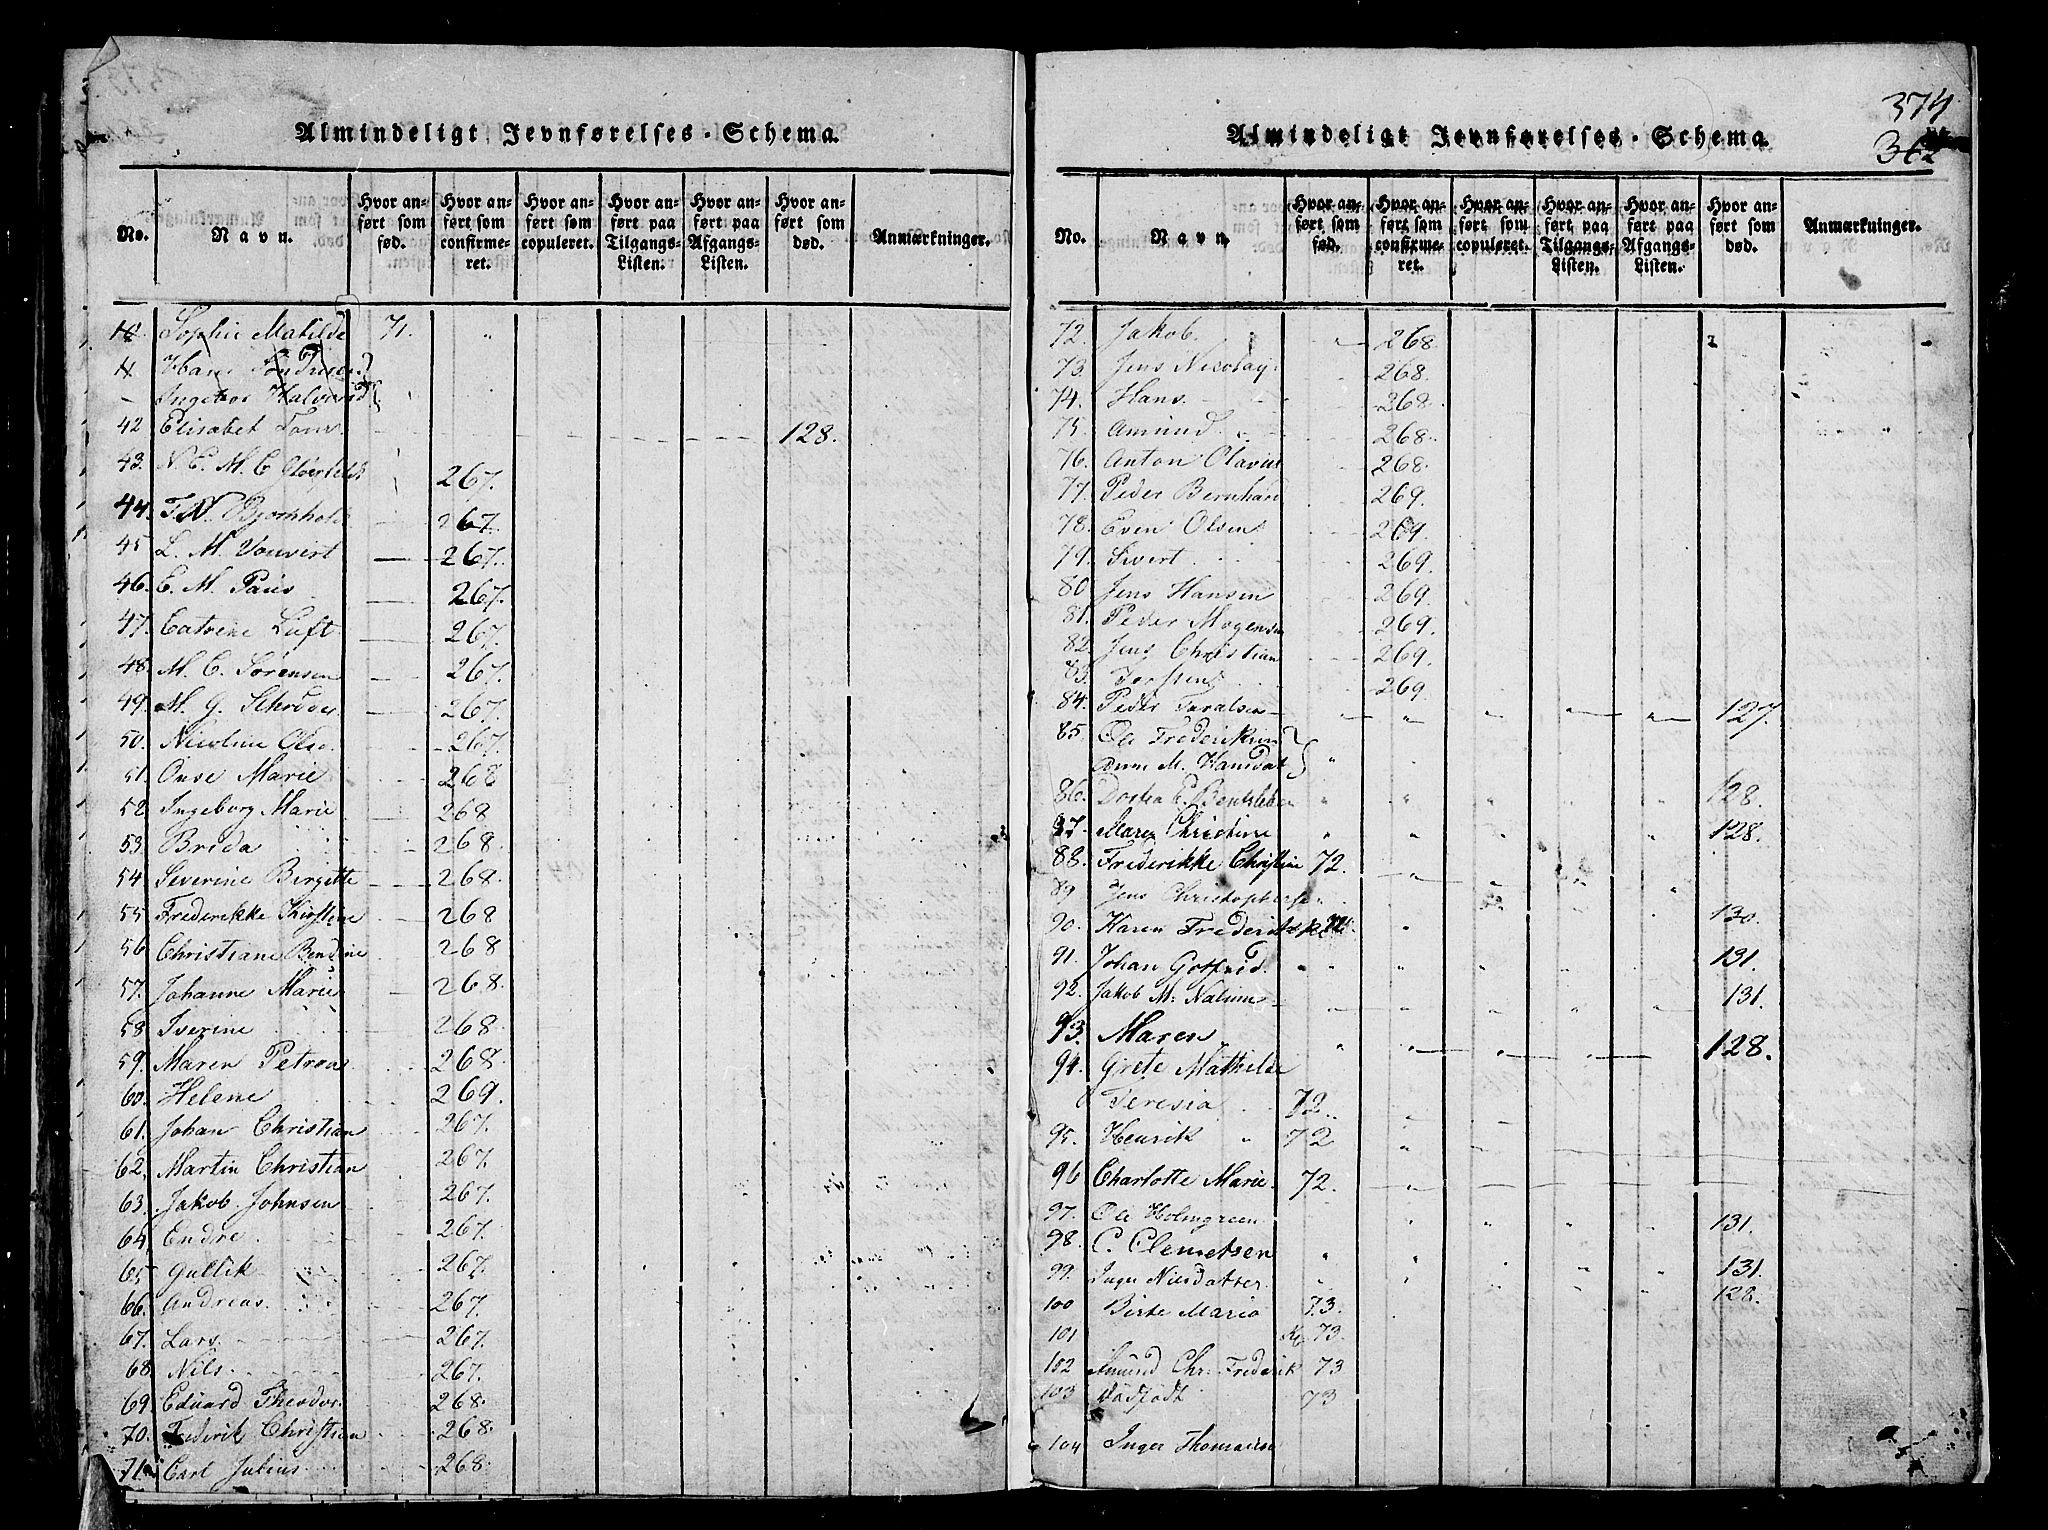 Almindeligt Jevnførelses-Schema.
No.
Navn.
Hvor anført som fød.
Hvor anført som confirmeret.
Hvor anført som copuleret.
Hvor anført paa Tilgangs-Listen.
Hvor anført paa Afgangs-Listen.
Hvor anført som død.
Anmærkninger.
Sophie Matilde 71.
Hans
Ingebor
42 Elisabet 128.
43. N. C. M. C. 267.
44. 267.
45 L. M. 267.
46. C. M. Paus 267.
47. Catrine Luft 267.
48. M. C. Sørensen 267.
49. M. G. Schrøder 267.
50. Nicoline Olse 267.
51. Onse Marie 268
52. Ingeborg Marie 268
53. Breda 268.
54. Severine Birgitte 268.
55 Frederikke Kirstine 268
56 Christiane Bendine 268
57. Johanne Marie 268.
58 Iverine 268.
59. Maren Petrea 268.
60. Helene 269.
61. Johan Christian 267.
62. Martin Christian 267.
63. Jakob Johnsen 267.
64. Endre 267.
65 Gullik 267.
66. Andreas 267.
67. Lars 267.
68 Nils 267.
69. Eduard Theodor 268.
70. Frederik Christian 268.
71. Carl Julius 268.
374
362
Almindeligt Jevnførelses-Schema.
No.
Navn.
Hvor anført som fød.
Hvor anført som confirmeret.
Hvor anført som copuleret.
Hvor anført paa Tilgangs-Listen.
Hvor anført paa Afgangs-Listen.
Hvor anført som død.
Anmærkninger.
72. Jakob 268.
73. Jens Nicolay 268.
74. Hans 268.
75. Amund 268.
76. Anton Olavus 268.
77. Peder Bernhard 269.
78. Even Olsen 269.
79. Sivert 269.
80 Jens Hansen 269.
81. Peder Mogensen 269.
82. Jens Christian 269.
83. Torsten 269
84. Peder 127.
85. Ole Frederiksen
Anne M. Hansdat
86. Dortea C. 128.
87. Maren Christine 128.
88. Frederikke Christine 72.
89 Jens Christophersen 130.
90. Karen
91. Johan Gotfried 131.
92. Jakob M. 131.
93. Maren 128.
94. Grete Mathilde
Teresia 72.
95. Henrik 72
96 Charlotte Marie 72.
97. Ole Holmgreen 131.
98. C. Clemetsen 131.
99. Inger Nilsdatter 128.
100 Birte Maria 73.
101 73.
102 Amund Chr. Frederik 73
103 Dødfødt 73
104 Inger